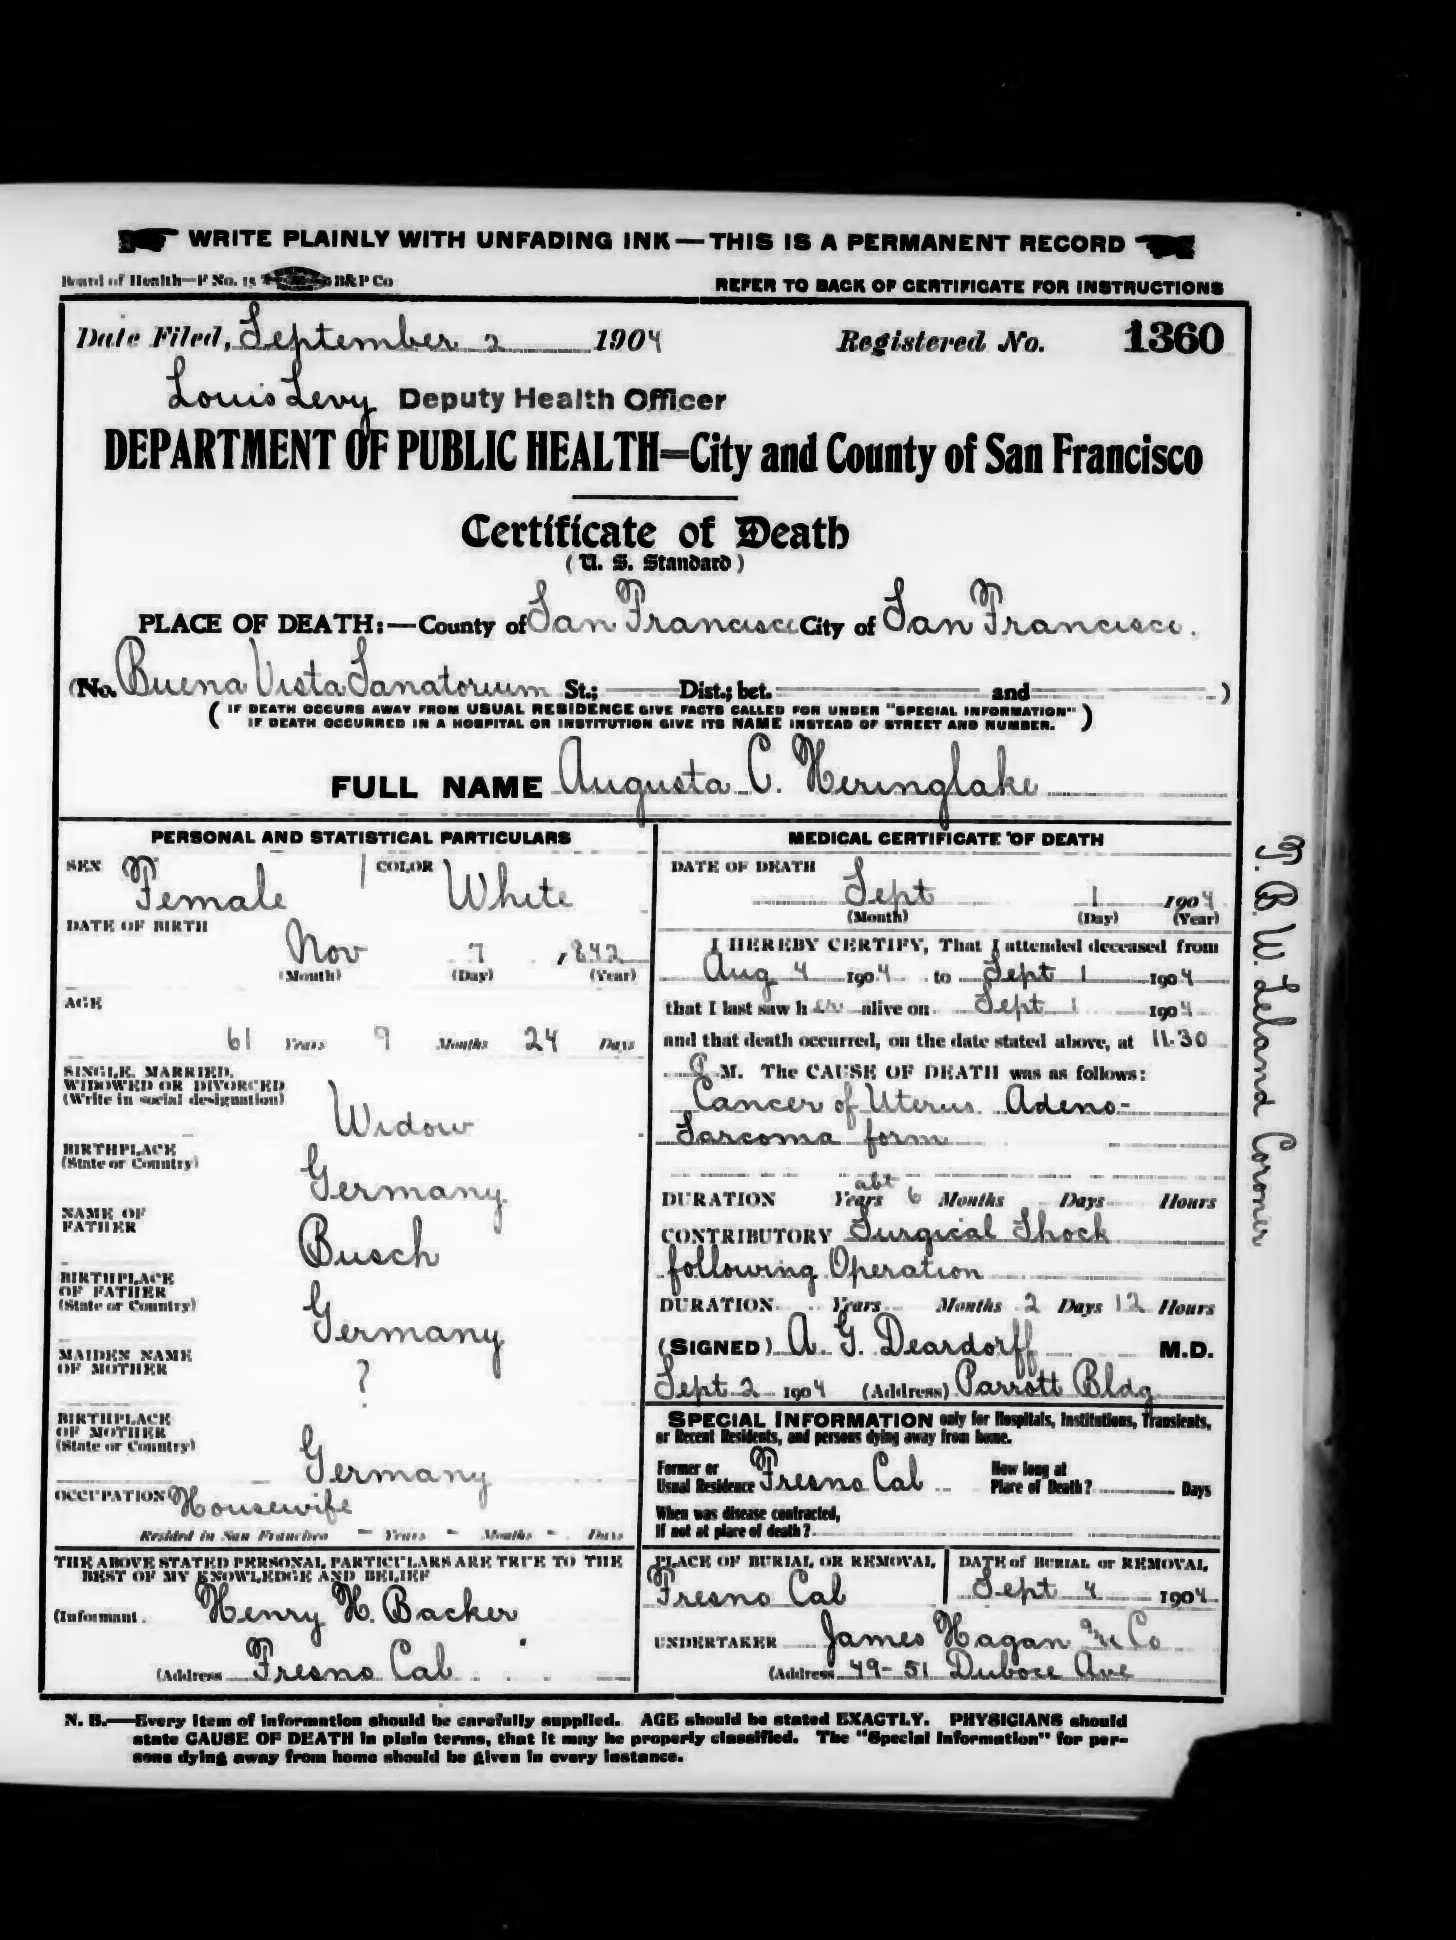 WRITE PLAINLY WITH UNFADING INK—THIS IS A PERMANENT RECORD
Board of Health—F No. 15 B&P Co
REFER TO BACK OF CERTIFICATE FOR INSTRUCTIONS
Date Filed, September 2 1904 Registered No. 1360
Louis Levy Deputy Health Officer
DEPARTMENT OF PUBLIC HEALTH=City and County of San Francisco
Certificate of Death
(U. S. Standard)
PLACE OF DEATH:—County of San Francisco City of San Francisco.
(No. Buena Vista Sanatorium St.; Dist.; bet. and )
(IF DEATH OCCURS AWAY FROM USUAL RESIDENCE GIVE FACTS CALLED FOR UNDER "SPECIAL INFORMATION"
IF DEATH OCCURRED IN A HOSPITAL OR INSTITUTION GIVE ITS NAME INSTEAD OF STREET AND NUMBER.)
FULL NAME Augusta C. Heringlake
PERSONAL AND STATISTICAL PARTICULARS
SEX Female COLOR White
DATE OF BIRTH
Nov 7 1842
(Month) (Day) (Year)
AGE
61 Years 9 Months 24 Days
SINGLE, MARRIED,
WIDOWED OR DIVORCED
(Write in social designation)
Widow
BIRTHPLACE
(State or Country)
Germany
NAME OF
FATHER
Busch
BIRTHPLACE
OF FATHER
(State or Country)
Germany
MAIDEN NAME
OF MOTHER
?
BIRTHPLACE
OF MOTHER
(State or Country)
Germany
OCCUPATION Housewife
Resided in San Francisco - Years - Months - Days
THE ABOVE STATED PERSONAL PARTICULARS ARE TRUE TO THE
BEST OF MY KNOWLEDGE AND BELIEF
(Informant Henry H. Backer
(Address Fresno Cal
MEDICAL CERTIFICATE OF DEATH
DATE OF DEATH
Sept 1 1904
(Month) (Day) (Year)
I HEREBY CERTIFY, That I attended deceased from
Aug 4 1904 to Sept 1 1904
that I last saw her alive on Sept 1 1904
and that death occurred, on the date stated above, at 11.30
P M. The CAUSE OF DEATH was as follows:
Cancer of Uterus. Adeno-
Sarcoma form
abt
DURATION Years 6 Months Days Hours
CONTRIBUTORY Surgical Shock
following Operation
DURATION Years Months 2 Days 12 Hours
(SIGNED) A. G. Deardorff M.D.
Sept 2 1904 (Address) Parrott Bldg
SPECIAL INFORMATION only for Hospitals, Institutions, Transients,
or Recent Residents, and persons dying away from home.
Former or
Usual Residence Fresno Cal
How long at
Place of Death? Days
When was disease contracted,
If not at place of death?
PLACE OF BURIAL OR REMOVAL
Fresno Cal
DATE of BURIAL or REMOVAL
Sept 4 1904
UNDERTAKER James Hagan & Co
(Address 49-51 Duboce Ave
N. B.—Every item of information should be carefully supplied. AGE should be stated EXACTLY. PHYSICIANS should
state CAUSE OF DEATH in plain terms, that it may be properly classified. The "Special Information" for per-
sons dying away from home should be given in every instance.
T. B. W. Leland Coroner